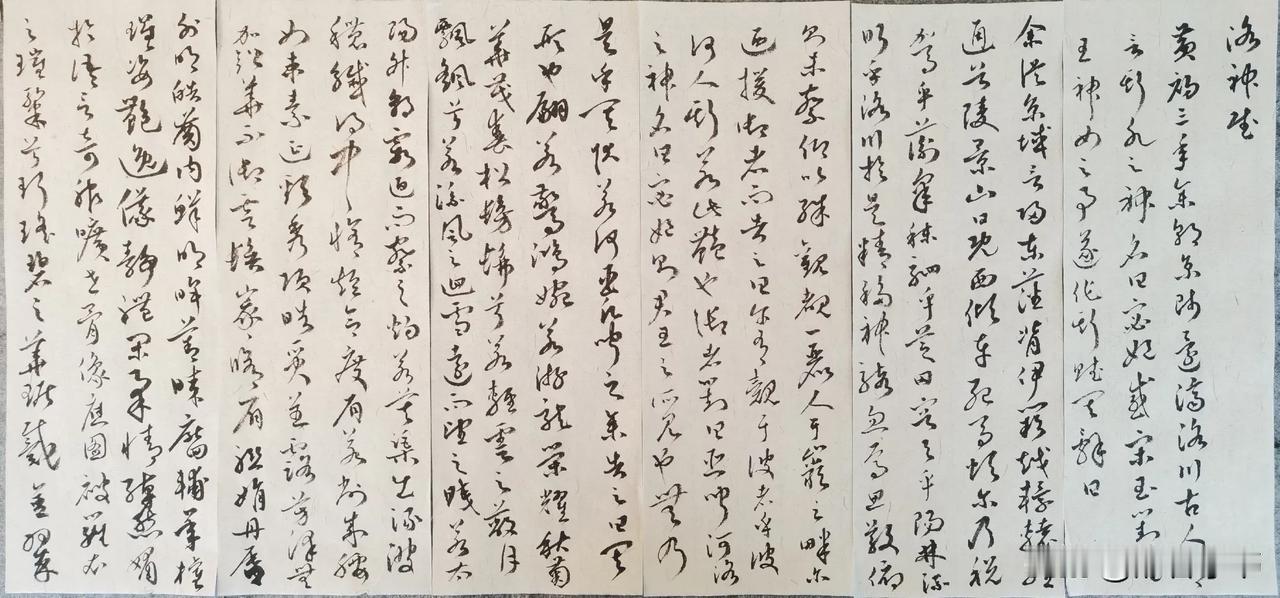 洛神賦
黃初三年余朝京師還濟洛川古人有
言斯水之神名曰宓妃感宋玉對楚
王神女之事遂作斯賦其辭曰
余從京域言歸東藩背伊闕越轘轅經
通谷陵景山日既西傾車殆馬煩爾乃稅
駕乎蘅皋秣駟乎芝田容與乎陽林流
眄乎洛川於是精移神駭忽焉思散俯
則未察仰以殊觀覩一麗人于巖之畔爾
迺援御者而告之曰爾有覿于彼者乎彼
何人斯若此艷也御者對曰臣聞河洛
之神名曰宓妃則君王之所見也無乃
是乎其狀若何臣願聞之余告之曰其
形也翩若驚鴻婉若游龍榮耀秋菊
華茂春松髣髴兮若輕雲之蔽月
飄颻兮若流風之迴雪遠而望之皎若太
陽升朝霞迫而察之灼若芙蕖出淥波
穠纖得中脩短合度肩若削成腰
如束素延頸秀項皓質呈露芳澤無
加鉛華不御雲髻峩峩脩眉聯娟丹唇
外朗皓齒內鮮明眸善睞靨輔承權
瓌姿艷逸儀靜體閑柔情綽態媚
於語言奇服曠世骨像應圖披羅衣
之璀粲兮珥瑤碧之華琚戴金翠